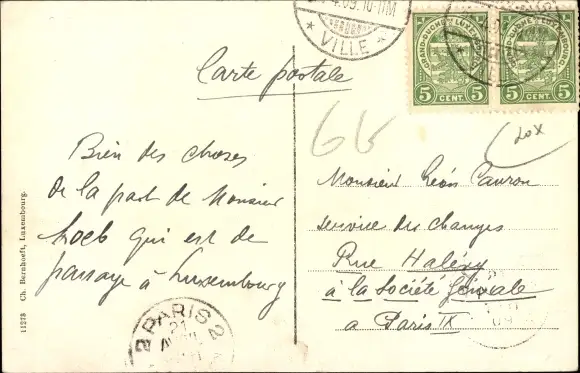 4.09.10-11M
* VILLE *
GRAND-DUCHÉ DE LUXEMBOURG
5 CENT. 5
GRAND-DUCHÉ DE LUXEMBOURG
5 CENT. 5
Carte postale
66
20x
Bien des choses
de la part de Monsieur
Loeb qui est de
passage à Luxembourg
Monsieur Léon
service des changes
Rue Halévy
à la Société Générale
a Paris IX
11278 Ch. Bernhoeft, Luxembourg.
PARIS 2
21
09